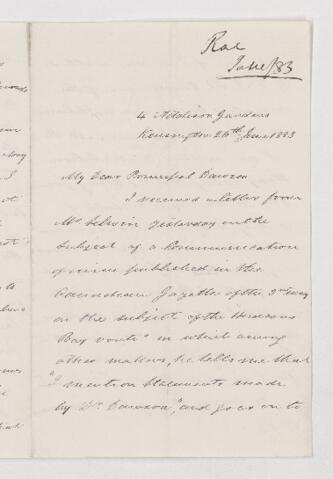 Rae
June/83
4 Addison Gardens
Kensington 26th June 1883
My dear Principal Dawson
I received a letter from
Mr. Selwin yesterday on the
subject of a Communication
of mine published in the
Canadian Gazette of the 3rd May
on the subject of the Hudsons
Bay route" in which among
other matters, he tells me that
"I mention statements made
by Dr. Dawson," and goes on to